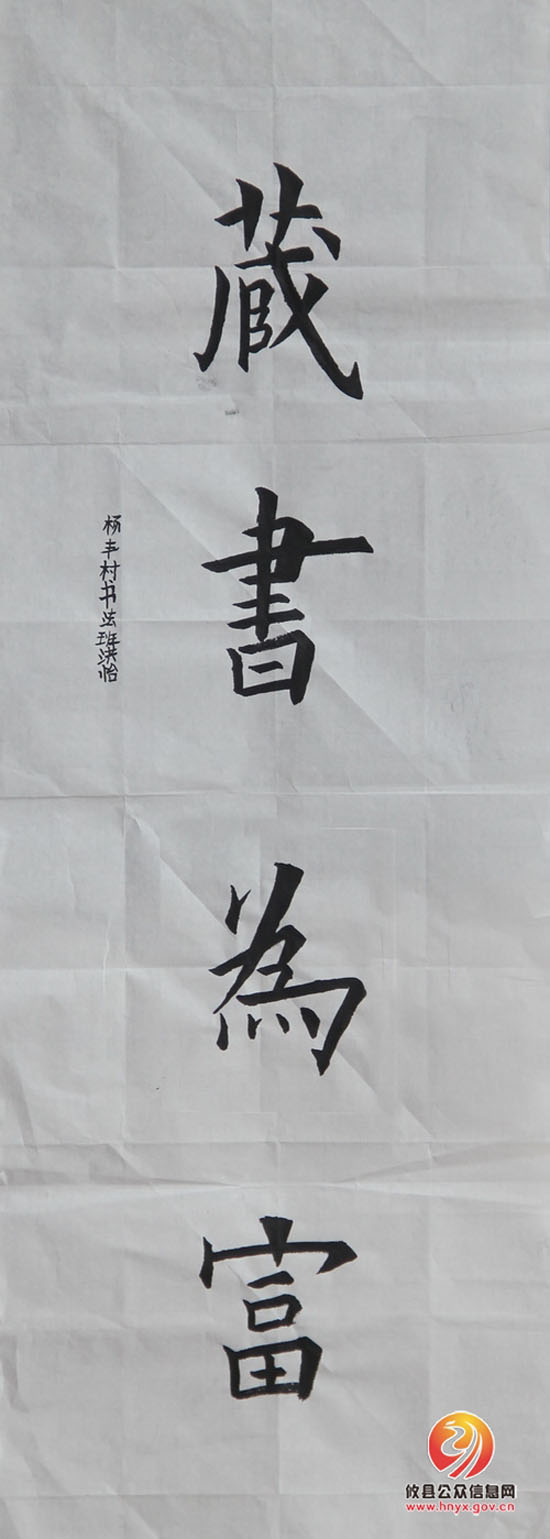 藏書為富
杨丰村书法班洪怡
攸县公众信息网
www.hnyx.gov.cn